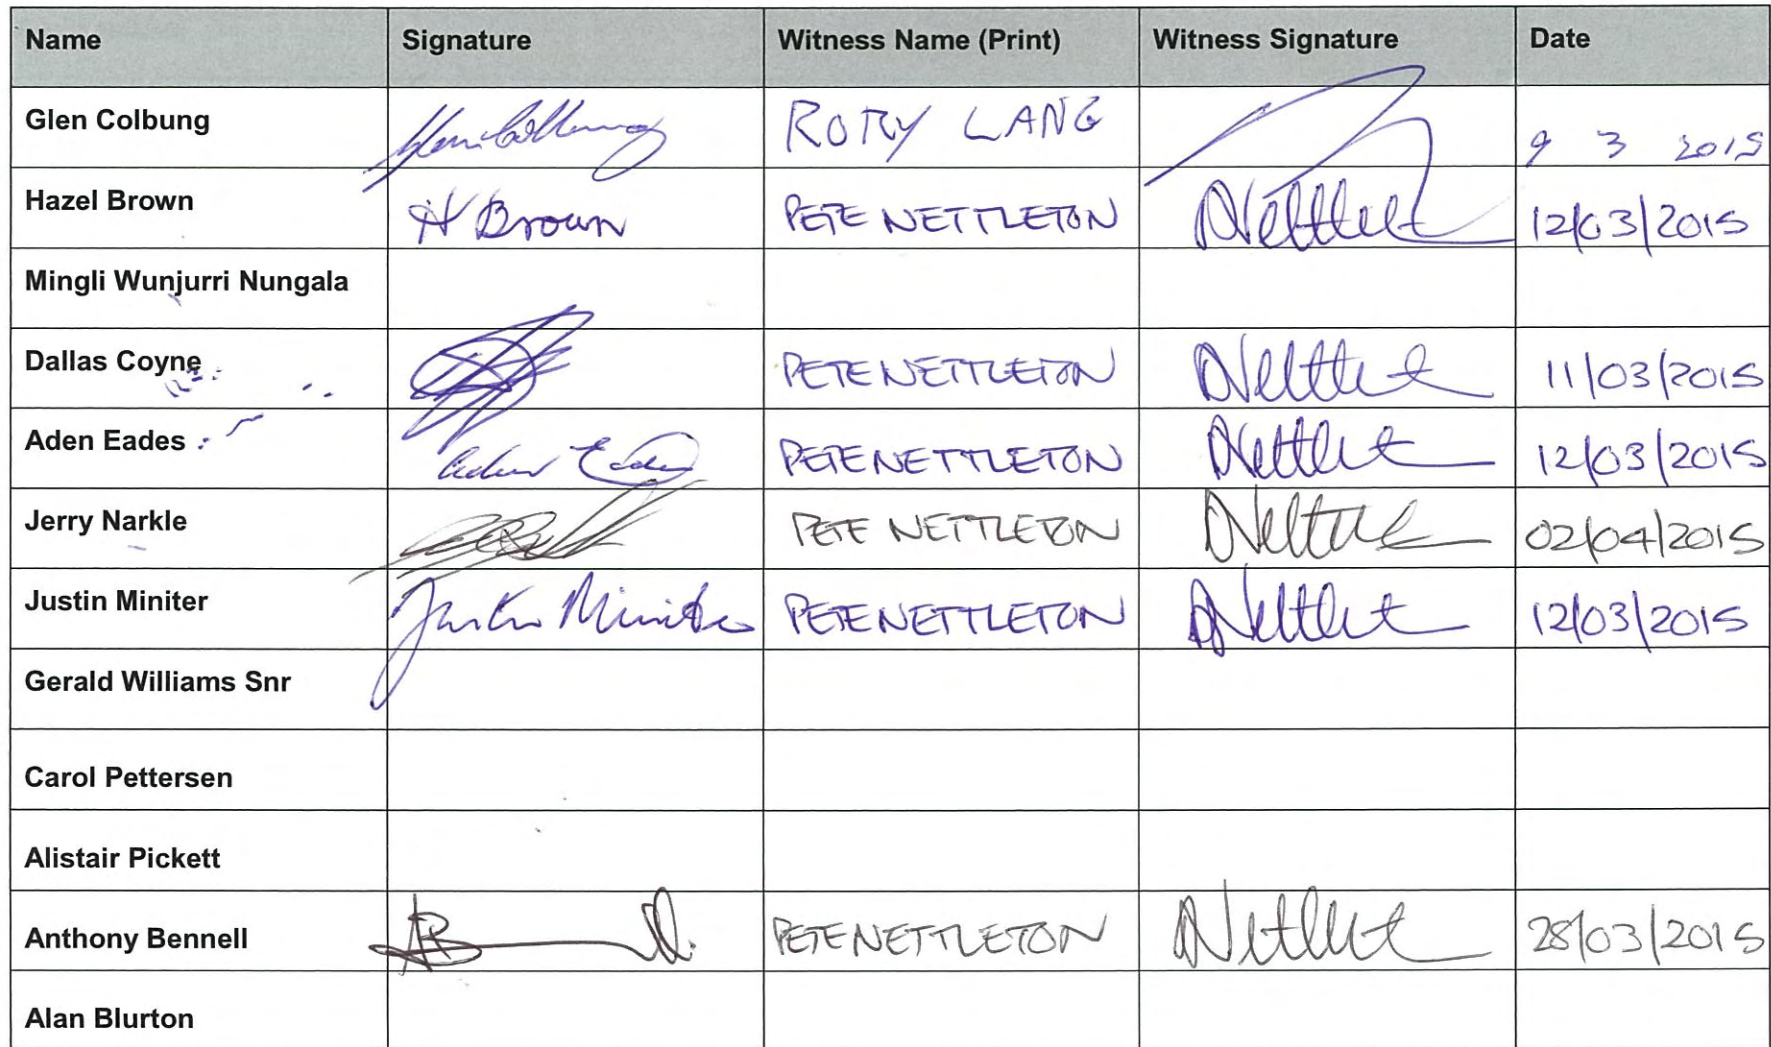 Name Signature Witness Name (Print) Witness Signature Date
Glen Colbung RORY LANG 9 3 2015
Hazel Brown H Brown PETE NETTLETON 12/03/2015
Mingli Wunjurri Nungala
Dallas Coyne PETE NETTLETON 11/03/2015
Aden Eades Aden Eades PETE NETTLETON 12/03/2015
Jerry Narkle PETE NETTLETON 02/04/2015
Justin Miniter Justin Miniter PETE NETTLETON 12/03/2015
Gerald Williams Snr
Carol Pettersen
Alistair Pickett
Anthony Bennell PETE NETTLETON 28/03/2015
Alan Blurton